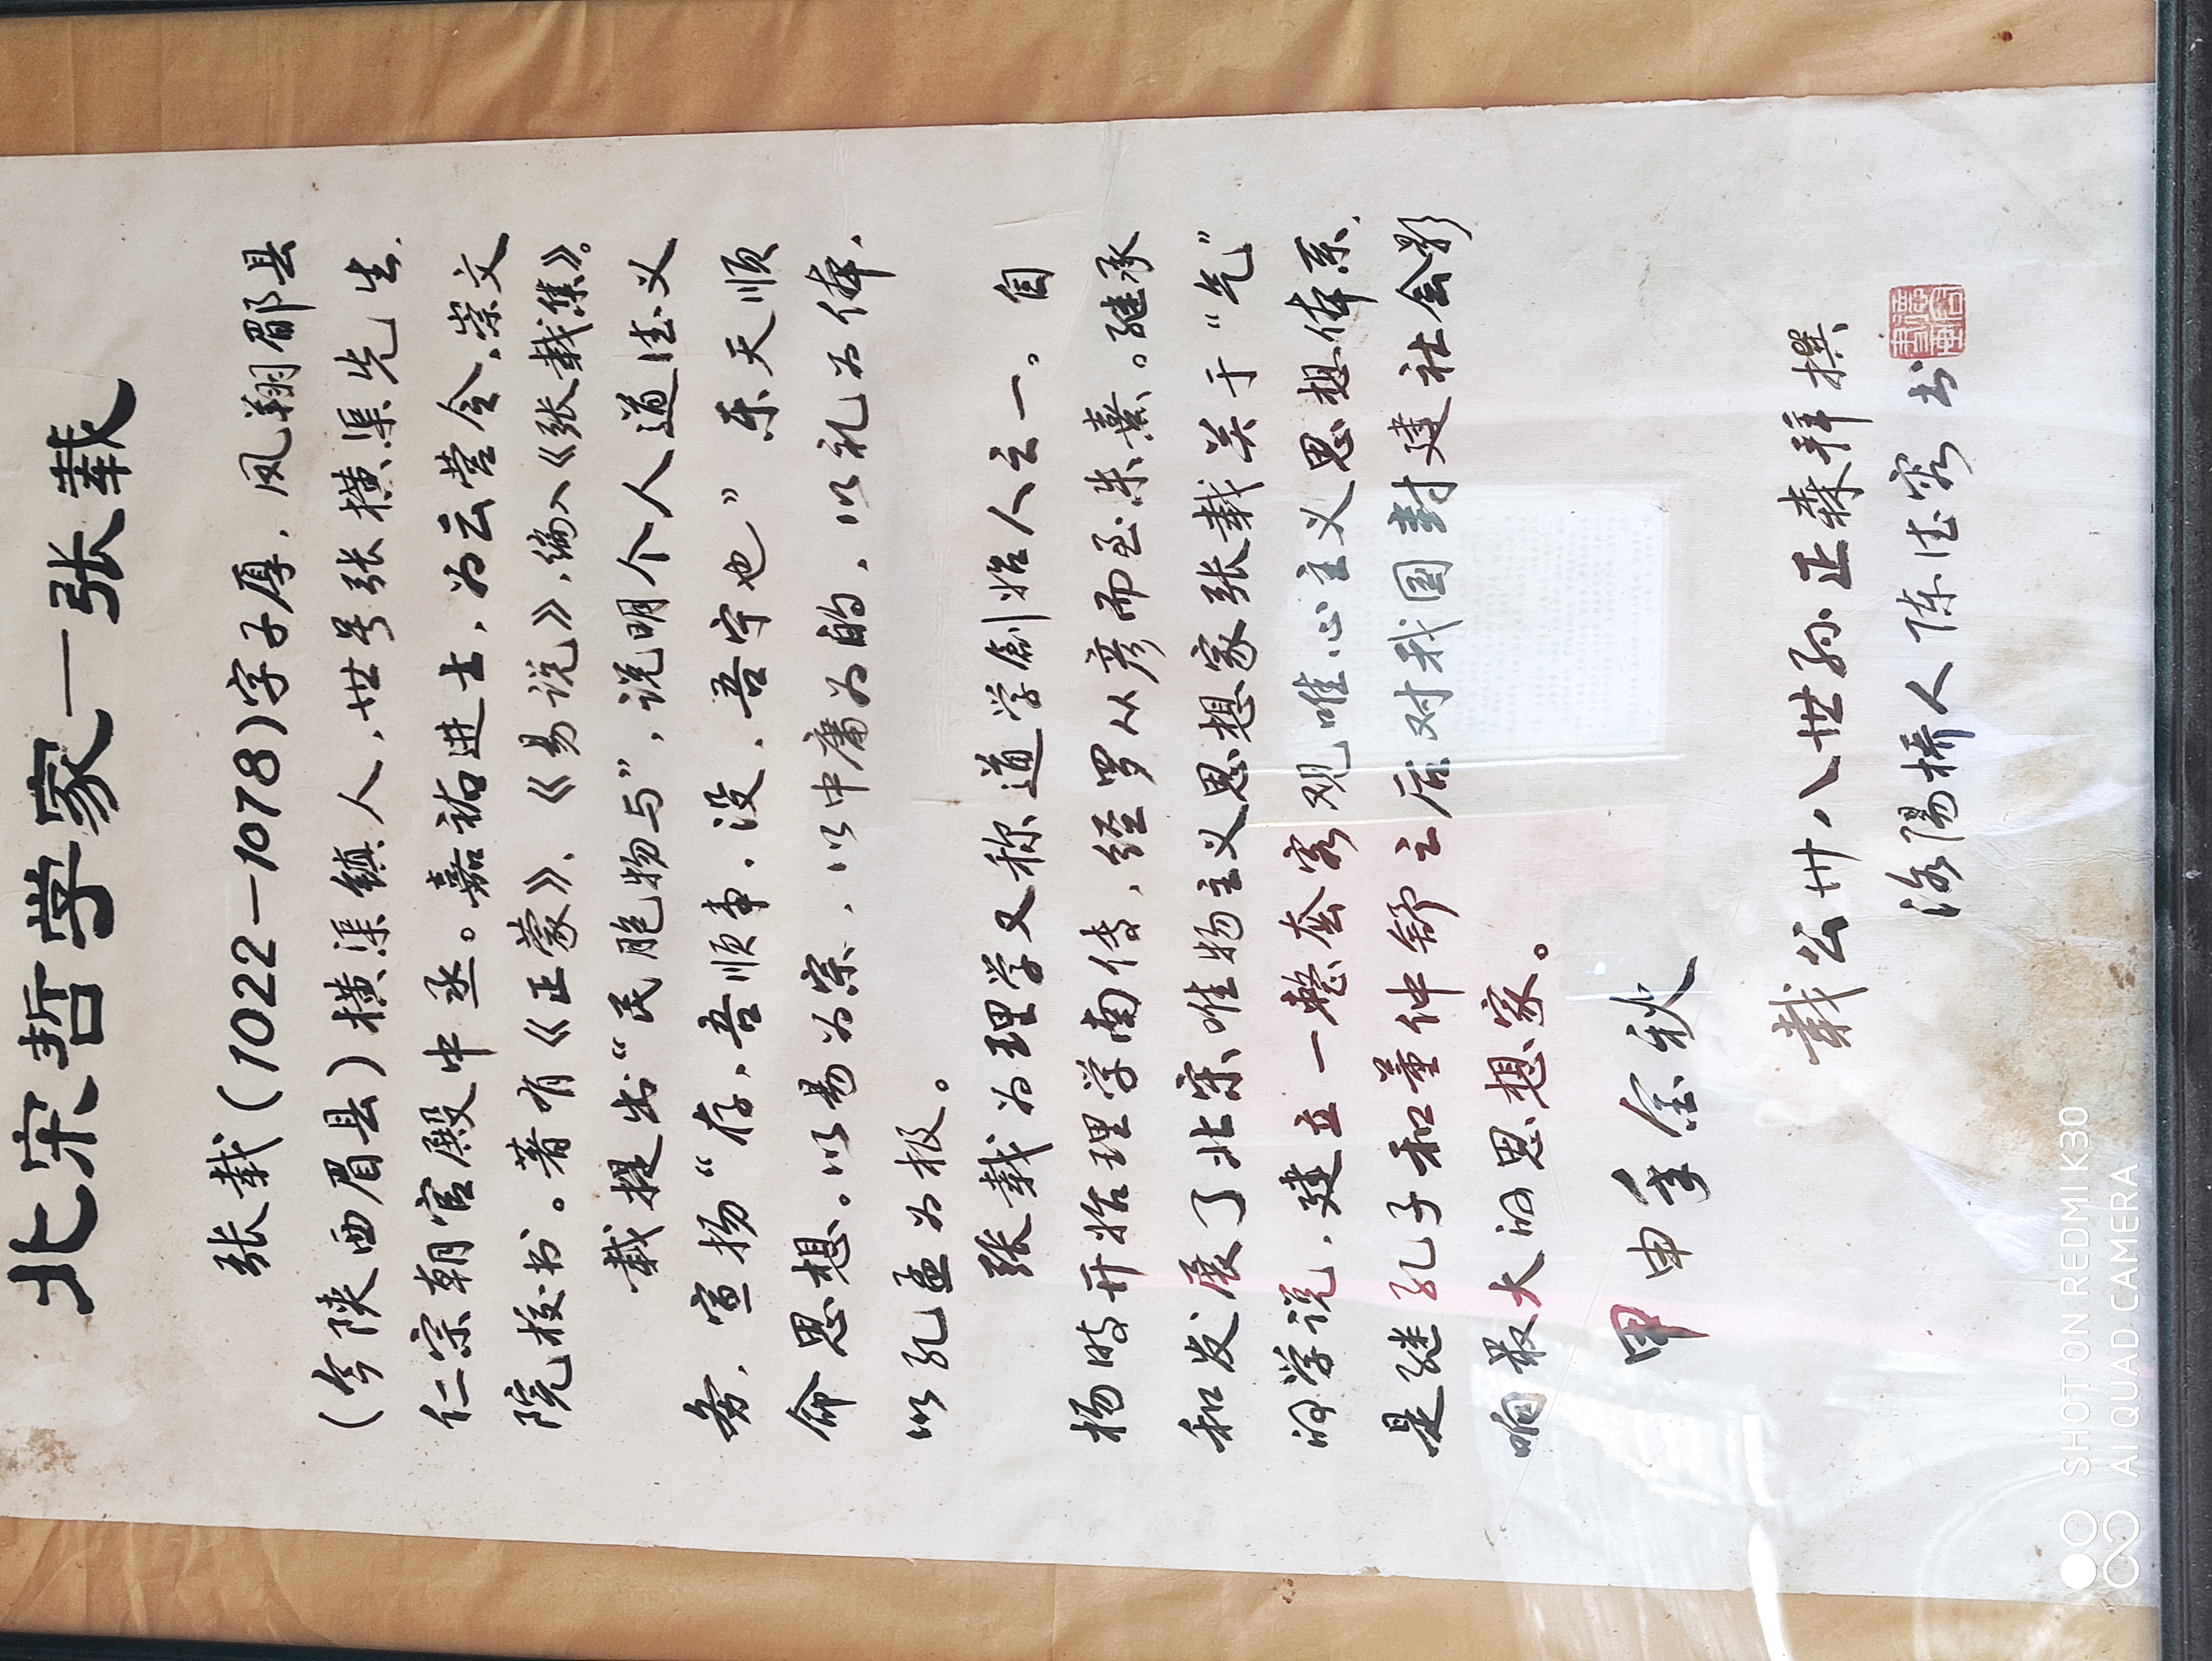 北宋哲学家—张载
张载(1022—1078)字子厚，凤翔郿县
(今陕西眉县)横渠镇人，世号张横渠先生.
仁宗朝官殿中丞。嘉祐进士，为云岩令、崇文
院校书。著有《正蒙》、《易说》，编入《张载集》。
载提出“民胞物与”，说明个人道德义
务，宣扬“存，吾顺事，没，吾宁也”乐天顺
命思想。以易为宗，以中庸为的，以礼为体，
以孔孟为极。
张载为理学又称道学创始人之一。自
杨时开始理学南传，经罗从彦而至朱熹。继承
和发展了北宋唯物主义思想家张载关于“气”
的学说，建立一整套客观唯心主义思想体系，
是继孔子和董仲舒之后对我国封建社会影
响最大的思想家。
甲申年金秋
载公卅八世孙正森拜撰
洛阳桥人陈德容书
SHOT ON REDMI K30
AI QUAD CAMERA